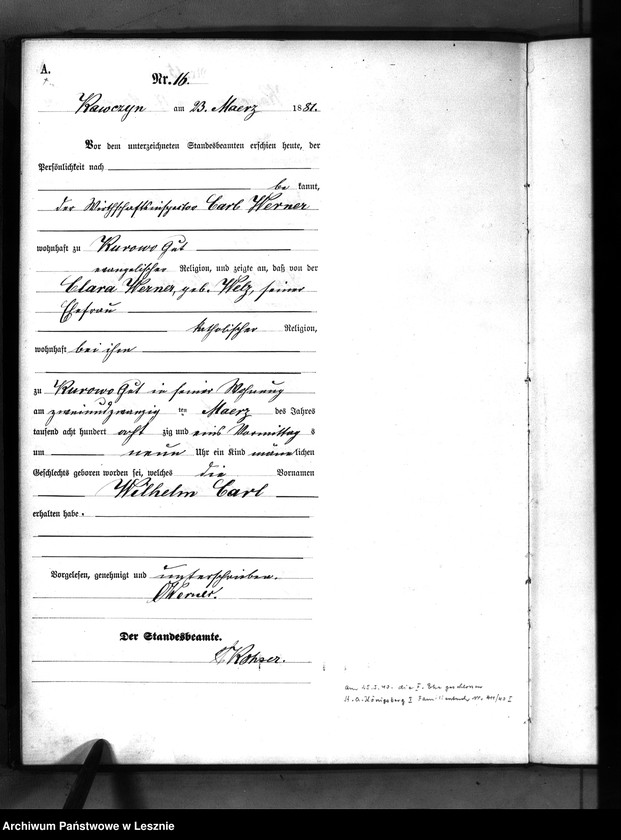 A.
Nr. 16.
Kawczyn am 23. Maerz 1881.
Vor dem unterzeichneten Standesbeamten erschien heute, der
Persönlichkeit nach
be kannt,
der Wirthschaftsinspector Carl Werner
wohnhaft zu Kurowo Gut
evangelischer Religion, und zeigte an, daß von der
Clara Werner, geb. Welz, seiner
Ehefrau
katholischer Religion,
wohnhaft bei ihm
zu Kurowo Gut in seiner Wohnung
am zweiundzwanzig ten Maerz des Jahres
tausend acht hundert acht zig und eins Vormittag s
um neun Uhr ein Kind männ lichen
Geschlechts geboren worden sei, welches die Vornamen
Wilhelm Carl
erhalten habe.
Vorgelesen, genehmigt und unterschrieben.
CWerner.
Der Standesbeamte.
Am die I. Ehe geschlossen
St. A. Königsberg I Familienbuch Nr. I
Archiwum Państwowe w Lesznie